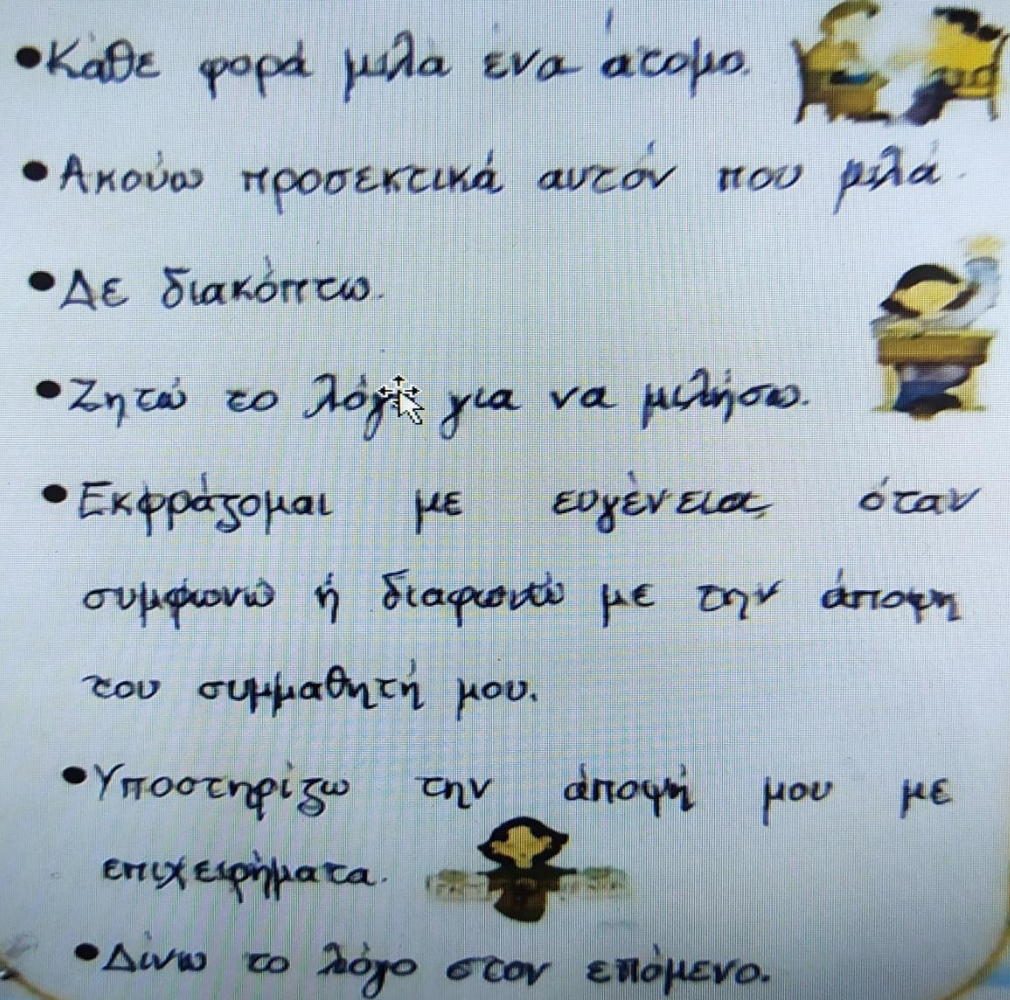 •Κάθε φορά μιλά ένα άτομο.
•Ακούω προσεκτικά αυτόν που μιλά.
•Δε διακόπτω.
•Ζητώ το λόγο για να μιλήσω.
•Εκφράζομαι με ευγένεια, όταν
συμφωνώ ή διαφωνώ με την άποψη
του συμμαθητή μου.
•Υποστηρίζω την άποψή μου με
επιχειρήματα.
•Δίνω το λόγο στον επόμενο.